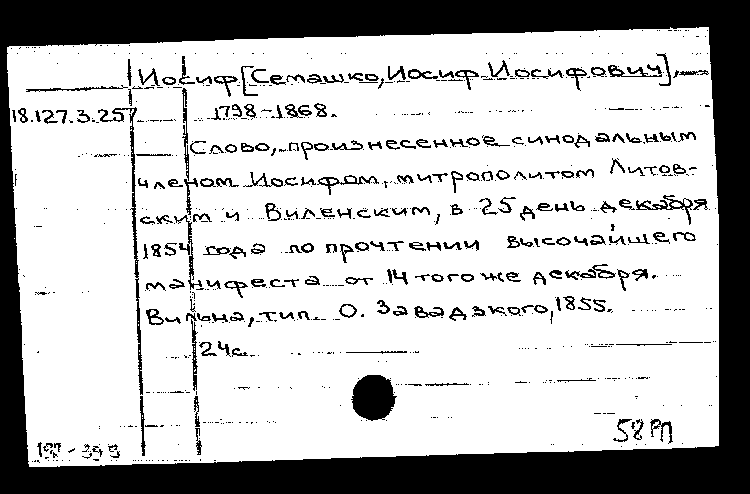 Иосиф [Семашко, Иосиф Иосифович],
18.127.3.257
1798-1868.
Слово, произнесенное синодальным
членом Иосифом, митрополитом Литов-
ским и Виленским, в 25 день декабря
1854 года по прочтении высочайшего
манифеста от 14 того же декабря.
Вильна, тип. О. Завадзкого, 1855.
24с.
58РП